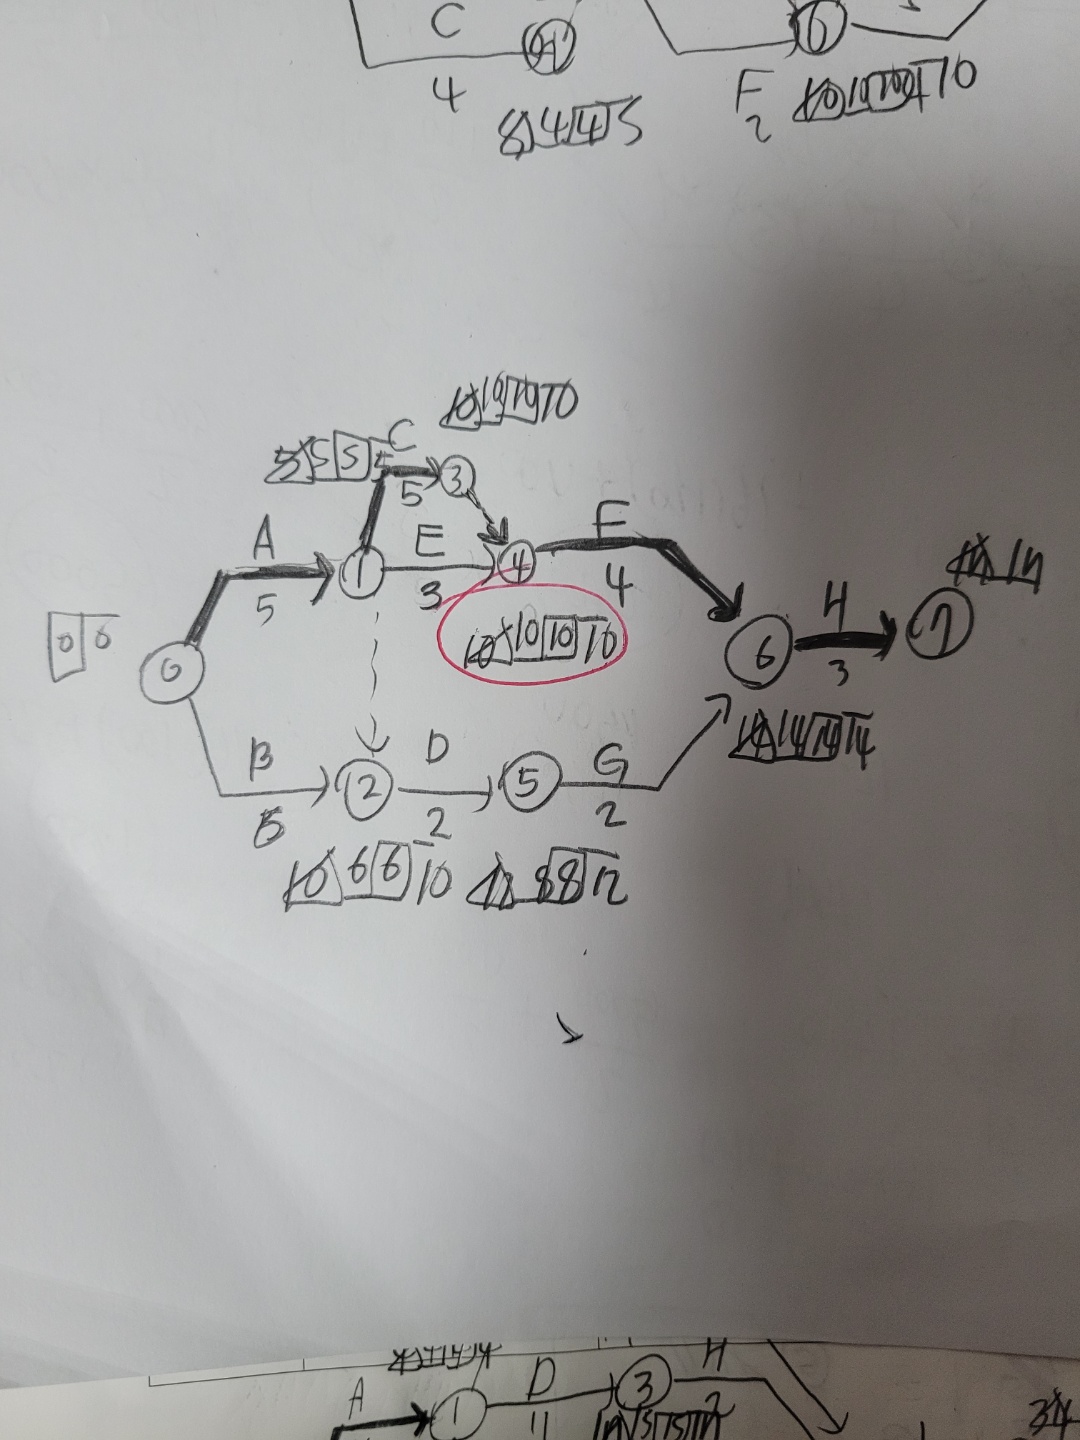 C
4
8 4 4 5
6
F
2
10
10 10 10 10
C
5 5 5 5
5
3
A
5
1
E
3
4
F
4
10 10 10 10
0 0
0
6
H
3
7
14 14 14 14
B
2
D
2
5
G
2
10 6 6 10
8 8 12
A
1
D
11
3
H
2